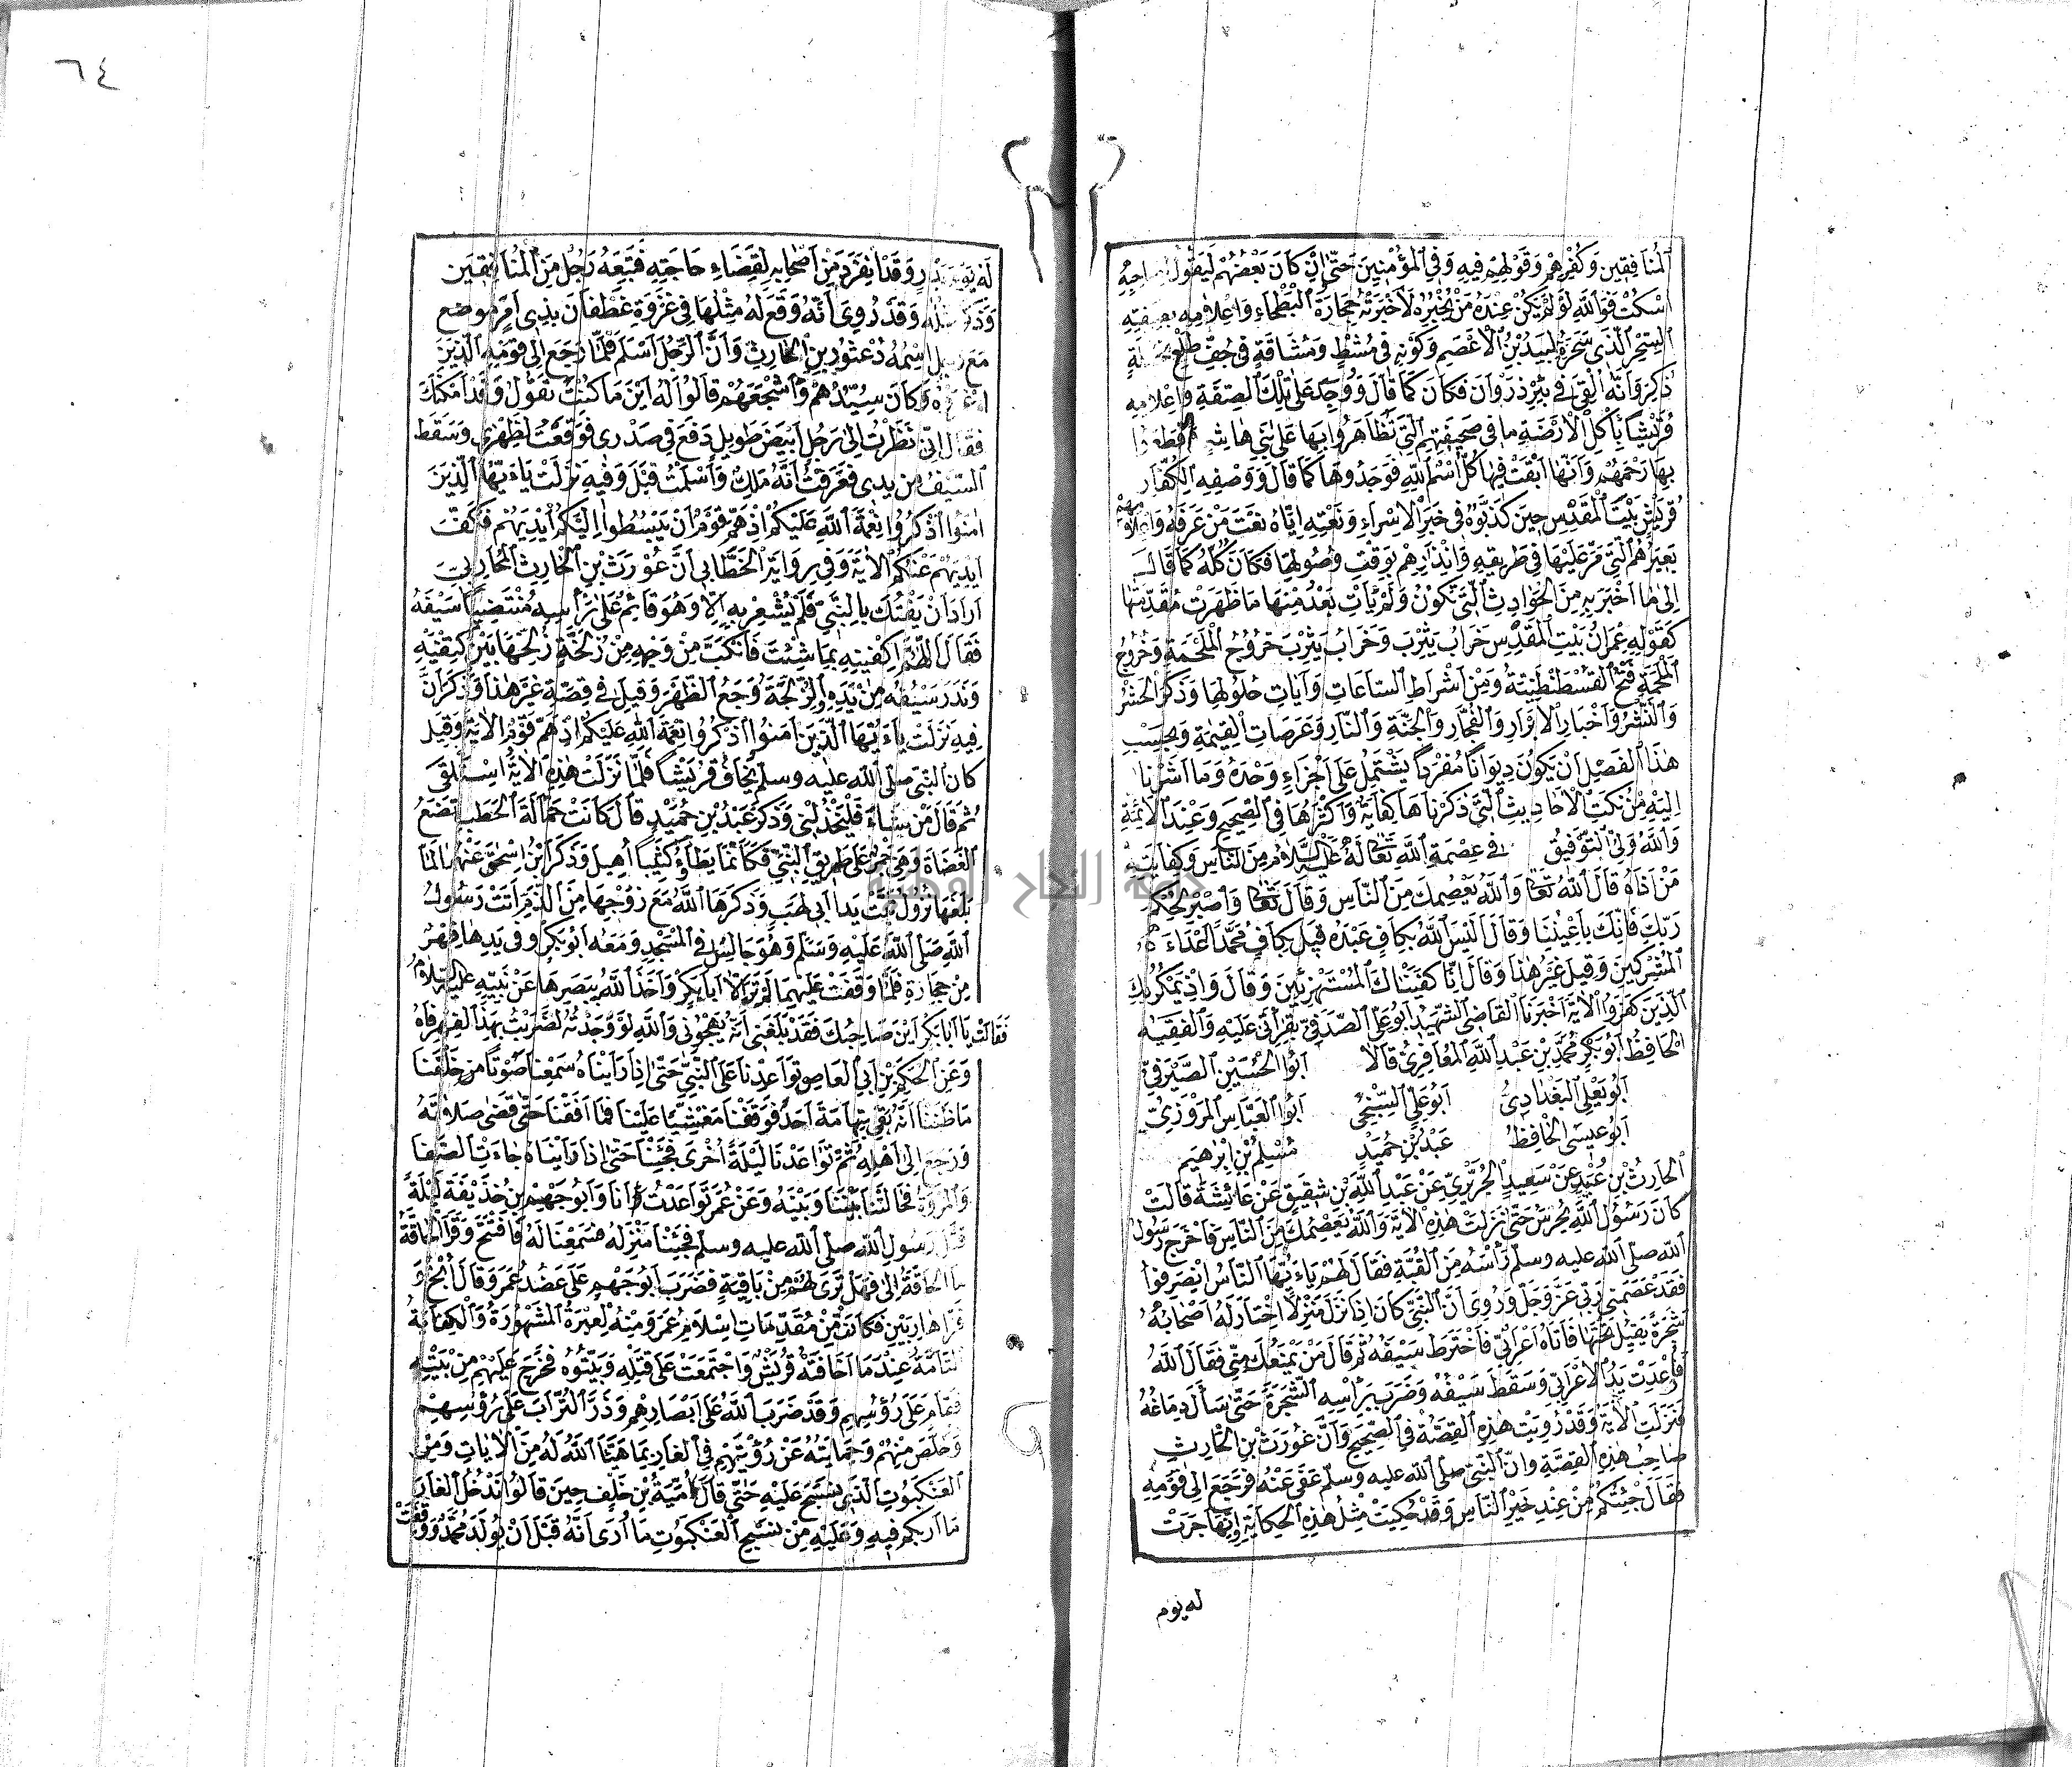 المُنَافِقِين وَكُفْرِهِم وَقَوْلِهِم فِيهِ وَفِي المؤمِنِينَ حَتّى اِنْ كَانَ بَعْضُهُم لَيَقُولُ لِصَاحِبِهِ
اسْكُتْ فَوَاللهِ لَوْ لَمْ يَكُنْ عِنْدَهُ مَنْ يُخْبِرُهُ لَاَخْبَرَتْهُ حِجَارَةُ البَطْحَاءِ وَاِعْلَامِهِ بِصِفَةِ
السِّحْرِ الَّذِي سَحَرَهُ لَبِيدُ بْنُ الاَعْصَمِ وَكَوْنِهِ فِي مُشْطٍ وَمُشَاقَةٍ فِي جُفِّ طَلْعِ نَخْلَةٍ
ذَكَرٍ وَاَنَّهُ اُلْقِيَ فِي بِئْرِ ذَرْوَانَ فَكَانَ كَمَا قَالَ وَوُجِدَ عَلَى تِلْكَ الصِّفَةِ وَاِعْلَامِهِ
قُرَيْشًا بِاَكْلِ الاَرَضَةِ مَا فِي صَحِيفَتِهِم الَّتِي تَظَاهَرُوا بِهَا عَلَى بَنِي هَاشِمٍ وَقَطَعُوا
بِهَا رَحِمَهُمْ وَاَنَّهَا اَبْقَتْ فِيهَا كُلَّ اسْمٍ لِلّهِ فَوَجَدُوهَا كَمَا قَالَ وَوَصْفِهِ لِكُفَّارِ
قُرَيْشٍ بَيْتَ المَقْدِسِ حِينَ كَذَّبُوهُ فِي خَبَرِ الاِسْرَاءِ وَنَعْتِهِ اِيَّاهُ نَعْتَ مَنْ عَرَفَهُ وَاِعْلَامِهِمْ
بِعِيرِهِمُ الَّتِي مَرَّ عَلَيْهَا فِي طَرِيقِهِ وَاِنْذَارِهِم بِوَقْتِ وُصُولِهَا فَكَانَ كُلُّهُ كَمَا قَالَ
اِلَى مَا اَخْبَرَ بِهِ مِنَ الحَوَادِثِ الَّتِي تَكُونُ وَلَمْ يَأْتِ بَعْدُ مِنْهَا مَا ظَهَرَتْ مُقَدِّمَاتُهَا
كَقَوْلِهِ عُمْرَانُ بَيْتِ المَقْدِسِ خَرَابُ يَثْرِبَ وَخَرَابُ يَثْرِبَ خُرُوجُ المَلْحَمَةِ وَخُرُوجُ
المَلْحَمَةِ فَتْحُ القُسْطَنْطِينِيَّةِ وَمِنْ اَشْرَاطِ السَّاعَاتِ وَآيَاتِ حُلُولِهَا وَذِكْرِ الحَشْرِ
وَالنَّشْرِ وَاَخْبَارِ الاَبْرَارِ وَالفُجَّارِ وَالجَنَّةِ وَالنَّارِ وَعَرَصَاتِ القِيمَةِ وَبِحَسْبِ
هَذَا الفَصْلِ اَنْ يَكُونَ دِيوَانًا مُفْرَدًا يَشْتَمِلُ عَلَى اَجْزَاءٍ وَحْدَهُ وَمَا اَشَرْنَا
اِلَيْهِ مِنْ نُكَتِ الاَحَادِيثِ الَّتِي ذَكَرْنَاهَا كِفَايَةٌ وَاَكْثَرُهَا فِي الصَّحِيحِ وَعِنْدَ الاَئِمَّةِ
وَاللهُ وَلِيُّ التَّوْفِيقُ في عِصْمَةِ اللهِ تَعَالَى لَهُ عَلَيْهِ السَّلَامُ مِنَ النَّاسِ وَكِفَايَتِهِ
مَنْ اَذَاهُ قَالَ اللهُ تَعَالَى وَاللهُ يَعْصِمُكَ مِنَ النَّاسِ وَقَالَ تَعَالَى وَاصْبِرْ لِحُكْمِ
رَبِّكَ فَاِنَّكَ بِاَعْيُنِنَا وَقَالَ اَلَيْسَ اللهُ بِكَافٍ عَبْدَهُ قِيلَ بِكَافٍ مُحَمَّدًا اَعْدَاءَهُ
المُشْرِكِينَ وَقِيلَ غَيْرُ هَذَا وَقَالَ اِنَّا كَفَيْنَاكَ المُسْتَهْزِئِينَ وَقَالَ وَاِذْ يَمْكُرُ بِكَ
الَّذِينَ كَفَرُوا الاَيَةَ اَخْبَرَنَا القَاضِي الشَّهِيدُ اَبُو عَلِيٍّ الصَّدَفِيُّ بِقِرَاءَتِي عَلَيْهِ وَالفَقِيهُ
الحَافِظُ اَبُو بَكْرٍ مُحَمَّدُ بْنُ عَبْدِ اللهِ المَعَافِرِيُّ قَالَا اَبُو الحُسَيْنِ الصَّيْرَفِيُّ
اَبُو يَعْلَى البَغْدَادِيُّ اَبُو عَلِيٍّ السِّنْجِيُّ اَبُو العَبَّاسِ المَرْوَزِيُّ
اَبُو عِيسَى الحَافِظُ عَبْدُ بْنُ حُمَيْدٍ مُسْلِمُ بْنُ اِبْرَهِيمَ
الحَارِثُ بْنُ عُبَيْدٍ عَنْ سَعِيدٍ الجُرَيْرِيِّ عَنْ عَبْدِ اللهِ بْنِ شَقِيقٍ عَنْ عَائِشَةَ قَالَتْ
كَانَ رَسُولُ اللهِ يُحْرَسُ حَتَّى نَزَلَتْ هَذِهِ الاَيَةُ وَاللهُ يَعْصِمُكَ مِنَ النَّاسِ فَاَخْرَجَ رَسُولُ
الله صلى الله عليه وسلم رَأْسَهُ مِنَ القُبَّةِ فَقَالَ لَهُمْ يَاءَيُّهَا النَّاسُ انْصَرِفُوا
فَقَدْ عَصَمَنِي رَبِّي عَزَّ وَجَلَّ وَرُوِيَ اَنَّ النَّبِيَّ كَانَ اِذَا نَزَلَ مَنْزِلًا اخْتَارَ لَهُ اَصْحَابُهُ
شَجَرَةً يَقِيلُ تَحْتَهَا فَاَتَاهُ اَعْرَابِيٌّ فَاخْتَرَطَ سَيْفَهُ ثُمَّ قَالَ مَنْ يَمْنَعُكَ مِنِّي فَقَالَ اللهُ
فَاُرْعِدَتْ يَدُ الاَعْرَابِيِّ وَسَقَطَ سَيْفُهُ وَضَرَبَ بِرَأْسِهِ الشَّجَرَةَ حَتَّى سَالَ دِمَاغُهُ
فَنَزَلَتِ الاَيَةُ وَقَدْ رُوِيَتْ هَذِهِ القِصَّةُ فِي الصَّحِيحِ وَاَنَّ غَوْرَثَ بْنَ الحَارِثِ
صَاحِبُ هَذِهِ القِصَّةِ وَانَّ النَّبِيَّ صلى الله عليه وسلم عَفَى عَنْهُ فَرَجَعَ اِلَى قَوْمِهِ
فَقَالَ جِئْتُكُمْ مِنْ عِنْدِ خَيْرِ النَّاسِ وَقَدْ حُكِيَتْ مِثْلُ هَذِهِ الحِكَايَةِ وَاِنَّهَا جَرَتْ
له يوم
٦٤
لَهُ يَوْمَ بَدْرٍ وَقَدْ انْفَرَدَ مِنْ اَصْحَابِهِ لِقَضَاءِ حَاجَتِهِ فَتَبِعَهُ رَجُلٌ مِنَ المُنَافِقِينَ
وَذَكَرَ مِثْلَهُ وَقَدْ رُوِيَ اَنَّهُ وَقَعَ لَهُ مِثْلُهَا فِي غَزْوَةِ غَطْفَانَ بِذِي اَمَرٍ مَوضع
مَعَ رَجُلٍ اِسْمُهُ دُعْثُورُ بْنُ الحَارِثِ وَاَنَّ الرَّجُلَ اَسْلَمَ فَلَمَّا رَجَعَ اِلَى قَوْمِهِ الَّذِينَ
اَغْرَوْهُ وَكَانَ سَيِّدُهُمْ وَاَشْجَعَهُمْ قَالُوا لَهُ اَيْنَ مَا كُنْتَ تَقُولُ وَقَدْ اَمْكَنَكَ
فَقَالَ اِنِّي نَظَرْتُ اِلَى رَجُلٍ اَبْيَضَ طَوِيلٍ دَفَعَ فِي صَدْرِي فَوَقَعْتُ لِظَهْرِي وَسَقَطَ
السَّيْفُ مِنْ يَدِي فَعَرَفْتُ اَنَّهُ مَلَكٌ وَاَسْلَمْتُ قِيلَ وَفِيهِ نَزَلَتْ يَاءَيُّهَا الَّذِينَ
اٰمَنُوا اذْكُرُوا نِعْمَةَ اللهِ عَلَيْكُمْ اِذْ هَمَّ قَوْمٌ اَنْ يَبْسُطُوا اِلَيْكُمْ اَيْدِيَهُمْ فَكَفَّ
اَيْدِيَهُمْ عَنْكُم الاٰيَةَ وَفِي رِوَايَةِ الخَطَّابِي اَنَّ غَوْرَثَ بْنَ الحَارِثِ المُحَارِبِيَّ
اَرَادَ اَنْ يَفْتُكَ بِالنَّبِيِّ فَلَمْ يَشْعُرْ بِهِ اِلَّا وَهُوَ قَائِمٌ عَلَى رَأْسِهِ مُنْتَضِيًا سَيْفَهُ
فَقَالَ اللّهُمَّ اكْفِنِيهِ بِمَا شِئْتَ فَانْكَبَّ مِنْ وَجْهِهِ مِنْ زُلَّخَةٍ زُلِّخَهَا بَيْنَ كَتِفَيْهِ
وَنَدَرَ سَيْفُهُ مِنْ يَدِهِ وَالزُّلَّخَةُ وَجَعُ الظَّهْرِ وَقِيلَ فِي قِصَّتِهِ غَيْرُ هَذَا وَذُكِرَ اَنَّ
فِيهِ نَزَلَتْ يَاءَيُّهَا الَّذِينَ اٰمَنُوا اذْكُرُوا نِعْمَةَ اللهِ عَلَيْكُمْ اِذْ هَمَّ قَوْمٌ الاٰيَةَ وَقِيلَ
كان النبي صلى الله عليه وسلم يَخَافُ قُرَيْشًا فَلَمَّا نَزَلَتْ هَذِهِ الاٰيَةُ اسْتَلْقَى
ثُمَّ قَالَ مَنْ شَاءَ فَلْيَخْذُلْنِي وَذَكَرَ عَبْدُ بْنُ حُمَيْدٍ قَالَ كَانَتْ حَمَّالَةَ الحَطَبِ تَضَعُ
العِضَاهَ وَهِيَ جَمْرٌ عَلَى طَرِيقِ النَّبِيِّ فَكَأَنَّمَا يَطَأُ كَثِيبًا اَهِيلَ وَذَكَرَ ابْنُ اِسْحَقَ عَنْهَا لَمَّا
بَلَغَهَا نُزُولُ تَبَّتْ يَدا اَبي لَهَبٍ وَذَكَرَهَا اللهُ مَعَ زَوْجِهَا مِنَ الذَّمِّ اَتَتْ رَسُولَ
اللهِ صَلَّى اللهُ عَلَيْهِ وَسَلَّمَ وَهُوَ جَالِسٌ فِي المَسْجِدِ وَمَعَهُ اَبُو بَكْرٍ وَفِي يَدِهَا فِهْرٌ
مِنْ حِجَارَةٍ فَلَمَّا وَقَفَتْ عَلَيْهِمَا لَمْ تَرَ اِلَّا اَبَا بَكْرٍ وَاَخَذَ اللهُ بِبَصَرِهَا عَنْ نَبِيِّهِ عليه السلام
فَقَالَتْ يَا اَبَا بَكْرٍ اَيْنَ صَاحِبُكَ فَقَدْ بَلَغَنِي اَنَّهُ يَهْجُونِي وَاللهِ لَوْ وَجَدْتُهُ لَضَرَبْتُ بِهَذَا الفِهْرِ فَاهُ
وَعَنِ الحَكَمِ بْنِ اَبِي العَاصِ تَوَاعَدْنَا عَلَى النَّبِيِّ حَتَّى اِذَا رَاَيْنَاهُ سَمِعْنَا صَوْتًا مِنْ خَلْفِنَا
مَا ظَنَنَّا اَنَّهُ بَقِيَ بِتِهَامَةَ اَحَدٌ فَوَقَعْنَا مَغْشِيًّا عَلَيْنَا فَمَا اَفَقْنَا حَتَّى قَضَى صَلَاتَهُ
وَرَجَعَ اِلَى اَهْلِهِ ثُمَّ تَوَاعَدْنَا لَيْلَةً اُخْرَى فَجِئْنَا حَتَّى اِذَا رَاَيْنَاهُ جَاءَتِ الصَّفَا
وَالمَرْوَةُ فَحَالَتْنَا بَيْنَنَا وَبَيْنَهُ وَعَنْ عُمَرَ تَوَاعَدْتُ اَنَا وَاَبُو جَهْمِ بْنُ حُذَيْفَةَ لَيْلَةً
قَتْلَ رَسُولِ اللهِ صلى الله عليه وسلم فَجِئْنَا مَنْزِلَهُ فَسَمِعْنَا لَهُ فَافْتَتَحَ وَقَرَأَ الحَاقَّةُ
مَا الحَاقَّةُ اِلى فَهَلْ تَرَى لَهُمْ مِنْ بَاقِيَةٍ فَضَرَبَ اَبُو جَهْمٍ عَلَى عَضُدِ عُمَرَ وَقَالَ اُنْجُ وَ
فَرَّا هَارِبَيْنِ فَكَانَتْ مِنْ مُقَدِّمَاتِ اِسْلَامِ عُمَرَ وَمِنْهُ العِبْرَةُ المَشْهُورَةُ وَالكِفَايَةُ
التَّامَّةُ عِنْدَمَا اَخَافَتْهُ قُرَيْشٌ وَاجْتَمَعَتْ عَلَى قَتْلِهِ وَبَيَّتُوهُ فَخَرَجَ عَلَيْهِمْ مِنْ بَيْتِهِ
فَقَامَ عَلَى رُؤُسِهِمْ وَقَدْ ضَرَبَ اللهُ عَلَى اَبْصَارِهِمْ وَذَرَّ التُّرَابَ عَلَى رُؤُسِهِمْ
وَخَلَصَ مِنْهُمْ وَحِمَايَتُهُ عَنْ رُؤْيَتِهِمْ فِي الغَارِ بِمَا هَيَّأَ اللهُ لَهُ مِنَ الاٰيَاتِ وَمِنَ
العَنْكَبُوتِ الَّذِي نَسَجَ عَلَيْهِ حَتَّى قَالَ اُمَيَّةُ بْنُ خَلَفٍ حِينَ قَالُوا نَدْخُلُ الغَارَ
مَا اَرَبُكُمْ فِيهِ وَعَلَيْهِ مِنْ نَسْجِ العَنْكَبُوتِ مَا اُرَى اَنَّهُ قَبْلَ اَنْ يُولَدَ مُحَمَّدٌ وَوَقَفَتْ